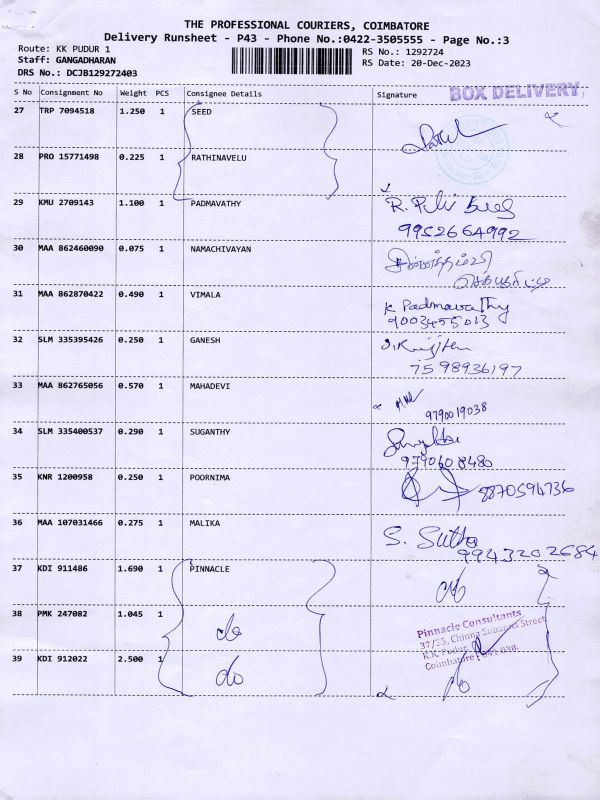 THE PROFESSIONAL COURIERS, COIMBATORE
Delivery Runsheet - P43 - Phone No.:0422-3505555 - Page No.:3
Route: KK PUDUR 1 RS No.: 1292724
Staff: GANGADHARAN RS Date: 20-Dec-2023
DRS No.: DCJB129272403
S No Consignment No Weight PCS Consignee Details Signature BOX DELIVERY
27 TRP 7094518 1.250 1 SEED
28 PRO 15771498 0.225 1 RATHINAVELU
29 KMU 2709143 1.100 1 PADMAVATHY R.
9952664992
30 MAA 862460090 0.075 1 NAMACHIVAYAN
31 MAA 862870422 0.490 1 VIMALA K Padmavathy
9003455013
32 SLM 335395426 0.250 1 GANESH
7598936197
33 MAA 862765056 0.570 1 MAHADEVI
9790019038
34 SLM 335400537 0.290 1 SUGANTHY
9790608480
35 KNR 1200958 0.250 1 POORNIMA 8870594736
36 MAA 107031466 0.275 1 MALIKA S. Sutha
9943202684
37 KDI 911486 1.690 1 PINNACLE
38 PMK 247082 1.045 1 do
Pinnacle Consultants
37/53, Chinna Subanna Street
K.K. Pudur
Coimbatore
39 KDI 912022 2.500 1 do